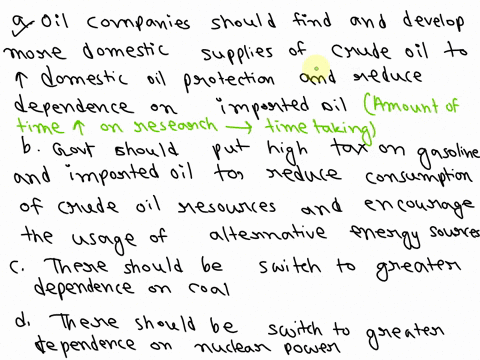 a. Oil companies should find and develop
more domestic supplies of crude oil to
↑ domestic oil protection and reduce
dependence on imported oil (Amount of
time ↑ on research → time taking)
b. Govt should put high tax on gasoline
and imported oil to reduce consumption
of crude oil resources and encourage
the usage of alternative energy sources
c. There should be switch to greater
dependence on coal
d. There should be switch to greater
dependence on nuclear power